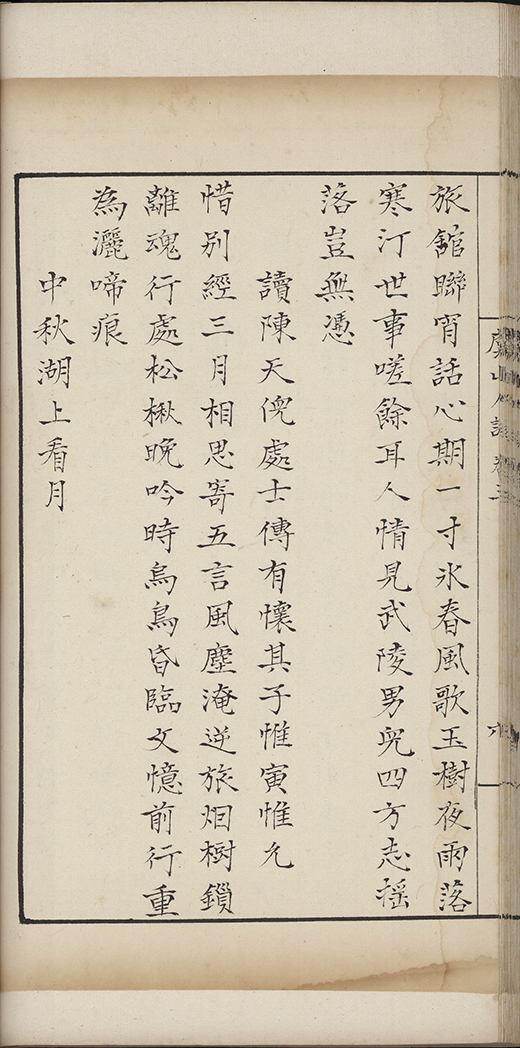 旅舘聯宵話心期一寸氷春風歌玉樹夜雨落
寒汀世事嗟餘耳人情見武陵男兒四方志揺
落豈無憑
讀陳天倪處士傳有懷其子惟寅惟允
惜别經三月相思寄五言風塵淹逆旅烟樹鎖
離魂行處松楸晚吟時烏鳥昏臨文憶前行重
為灑啼痕
中秋湖上看月